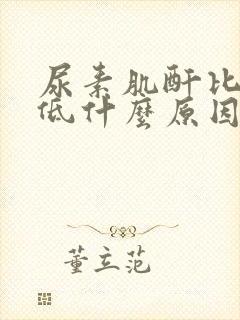 尿素肌酐比
低什麼原因
董立范